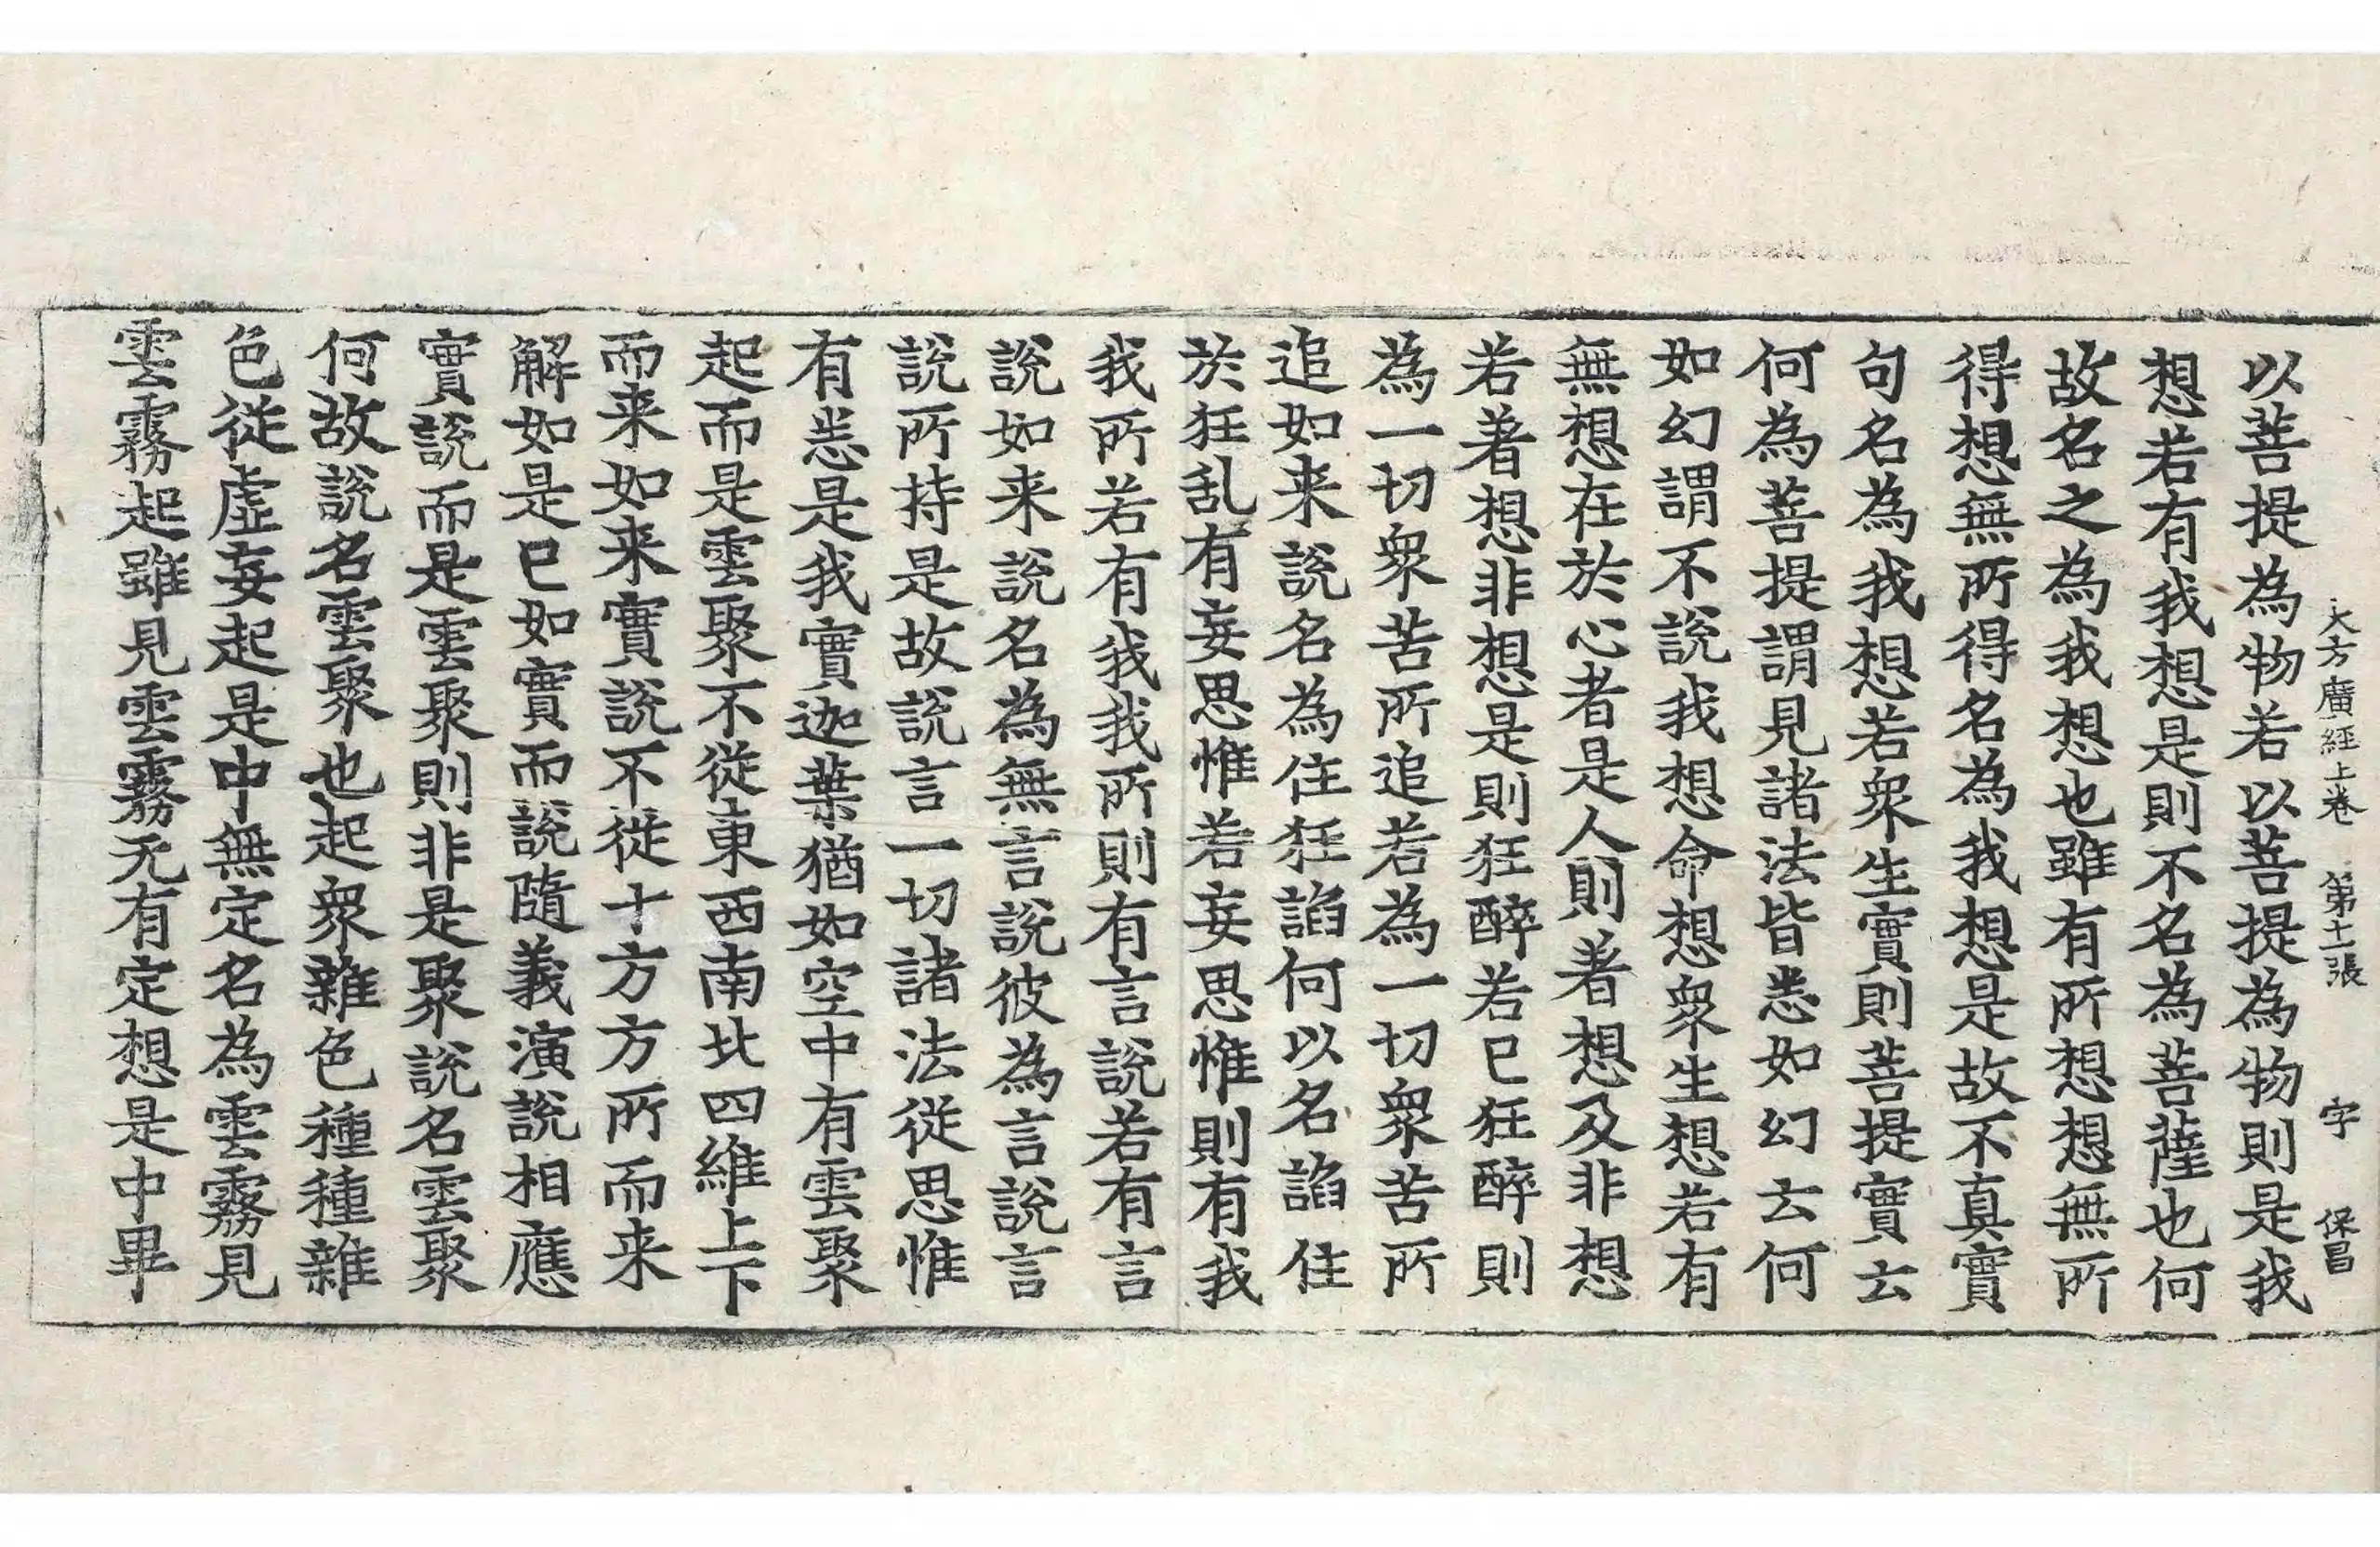 大方廣經上卷 第十二張 字 保昌
以菩提為物若以菩提為物則是我
想若有我想是則不名為菩薩也何
故名之為我想也雖有所想想無所
得想無所得名為我想是故不真實
句名為我想若衆生實則菩提實云
何為菩提謂見諸法皆悉如幻云何
如幻謂不說我想命想衆生想若有
無想在於心者是人則著想及非想
若著想非想是則狂醉若已狂醉則
為一切衆苦所追若為一切衆苦所
追如来說名為住狂諂何以名諂住
於狂乱有妄思惟若妄思惟則有我
我所若有我我所則有言說若有言
說如来說名為無言說彼為言說言
說所持是故說言一切諸法從思惟
有悉是我實迦葉猶如空中有雲聚
起而是雲聚不從東西南北四維上下
而来如来實說不從十方方所而来
解如是已如實而說隨義演說相應
實說而是雲聚則非是聚說名雲聚
何故說名雲聚也起衆雜色種種雜
色從虛妄起是中無定名為雲霧見
雲霧起雖見雲霧无有定想是中畢